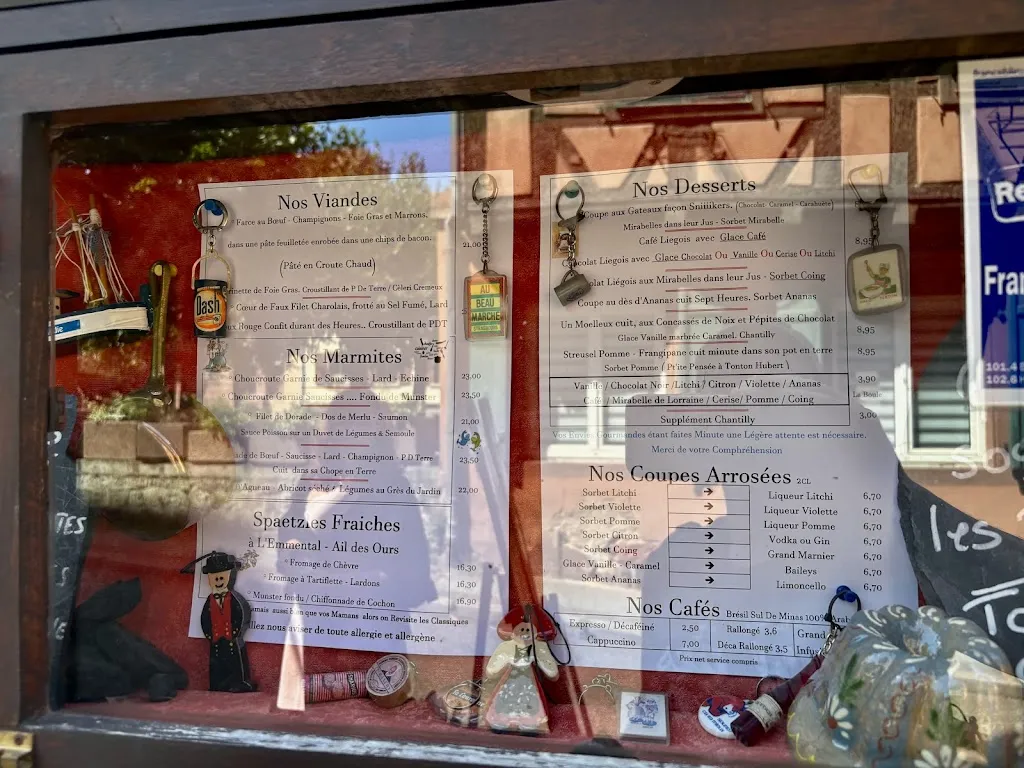 Nos Viandes
Farce au Bœuf - Champignons - Foie Gras et Marrons,
dans une pâte feuilletée enrobée dans une chips de bacon. 21,00
(Pâté en Croute Chaud)
de Foie Gras. Croustillant de P De Terre / Céleri Crémeux
Cœur de Faux Filet Charolais, frotté au Sel Fumé, Lard
Rouge Confit durant des Heures.. Croustillant de PDT
Nos Marmites
Choucroute Garnie de Saucisses - Lard - Echine 23,00
Choucroute Garnie Saucisses .... Fondu de Munster 23,50
Filet de Dorade - Dos de Merlu - Saumon 21,00
Sauce Poisson sur un Duvet de Légumes & Semoule
de Bœuf - Saucisse - Lard - Champignon - P.D Terre 23,50
Cuit dans sa Chope en Terre
Agneau - Abricot séché & Légumes au Grès du Jardin 22,00
Spaetzles Fraiches
à L'Emmental - Ail des Ours
Fromage de Chèvre 16,30
Fromage à Tartiflette - Lardons 16,30
Munster fondu / Chiffonnade de Cochon 16,90
amais aussi bien que vos Mamans alors on Revisite les Classiques
nous aviser de toute allergie et allergène
Dash
AU
BEAU
MARCHE
Nos Desserts
Coupe aux Gateaux façon Sniiiikers. (Chocolat - Caramel - Cacahuète)
Mirabelles dans leur Jus - Sorbet Mirabelle
Café Liegois avec Glace Café 8,95
Liegois avec Glace Chocolat Ou Vanille Ou Cerise Ou Litchi
Liégois aux Mirabelles dans leur Jus - Sorbet Coing
Coupe au dès d'Ananas cuit Sept Heures. Sorbet Ananas
Un Moelleux cuit, aux Concassés de Noix et Pépites de Chocolat 8,95
Glace Vanille marbrée Caramel. Chantilly
Streusel Pomme - Frangipane cuit minute dans son pot en terre 8,95
Sorbet Pomme ( P'tite Pensée à Tonton Hubert )
Vanille / Chocolat Noir / Litchi / Citron / Violette / Ananas 3,90
Café / Mirabelle de Lorraine / Cerise / Pomme / Coing La Boule
Supplément Chantilly 3,00
Vos Envies Gourmandes étant faites Minute une Légère attente est nécessaire.
Merci de votre Compréhension
Nos Coupes Arrosées 2CL
Sorbet Litchi → Liqueur Litchi 6,70
Sorbet Violette → Liqueur Violette 6,70
Sorbet Pomme → Liqueur Pomme 6,70
Sorbet Citron → Vodka ou Gin 6,70
Sorbet Coing → Grand Marnier 6,70
Glace Vanille - Caramel → Baileys 6,70
Sorbet Ananas → Limoncello 6,70
Nos Cafés Brésil Sul De Minas 100% Arab
Expresso / Décaféiné 2,50 Rallongé 3,6 Grand
Cappuccino 7,00 Déca Rallongé 3,5 Infu
Prix net service compris
Re
Fran
101.4
102.6
les
TES